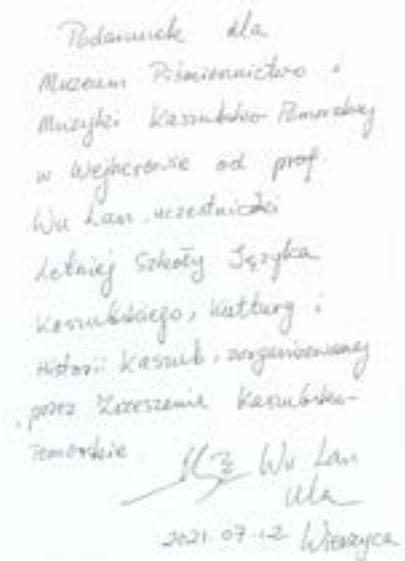 Podarunek dla
Muzeum Piśmiennictwa i
Muzyki Kaszubsko-Pomorskiej
w Wejherowie od prof.
Wu Lan, uczestniczki
Letniej Szkoły Języka
Kaszubskiego, Kultury i
Historii Kaszub, zorganizowanej
przez Zrzeszenie Kaszubsko-
Pomorskie
Wu Lan
Ula
2021.07.12 Wieżyca